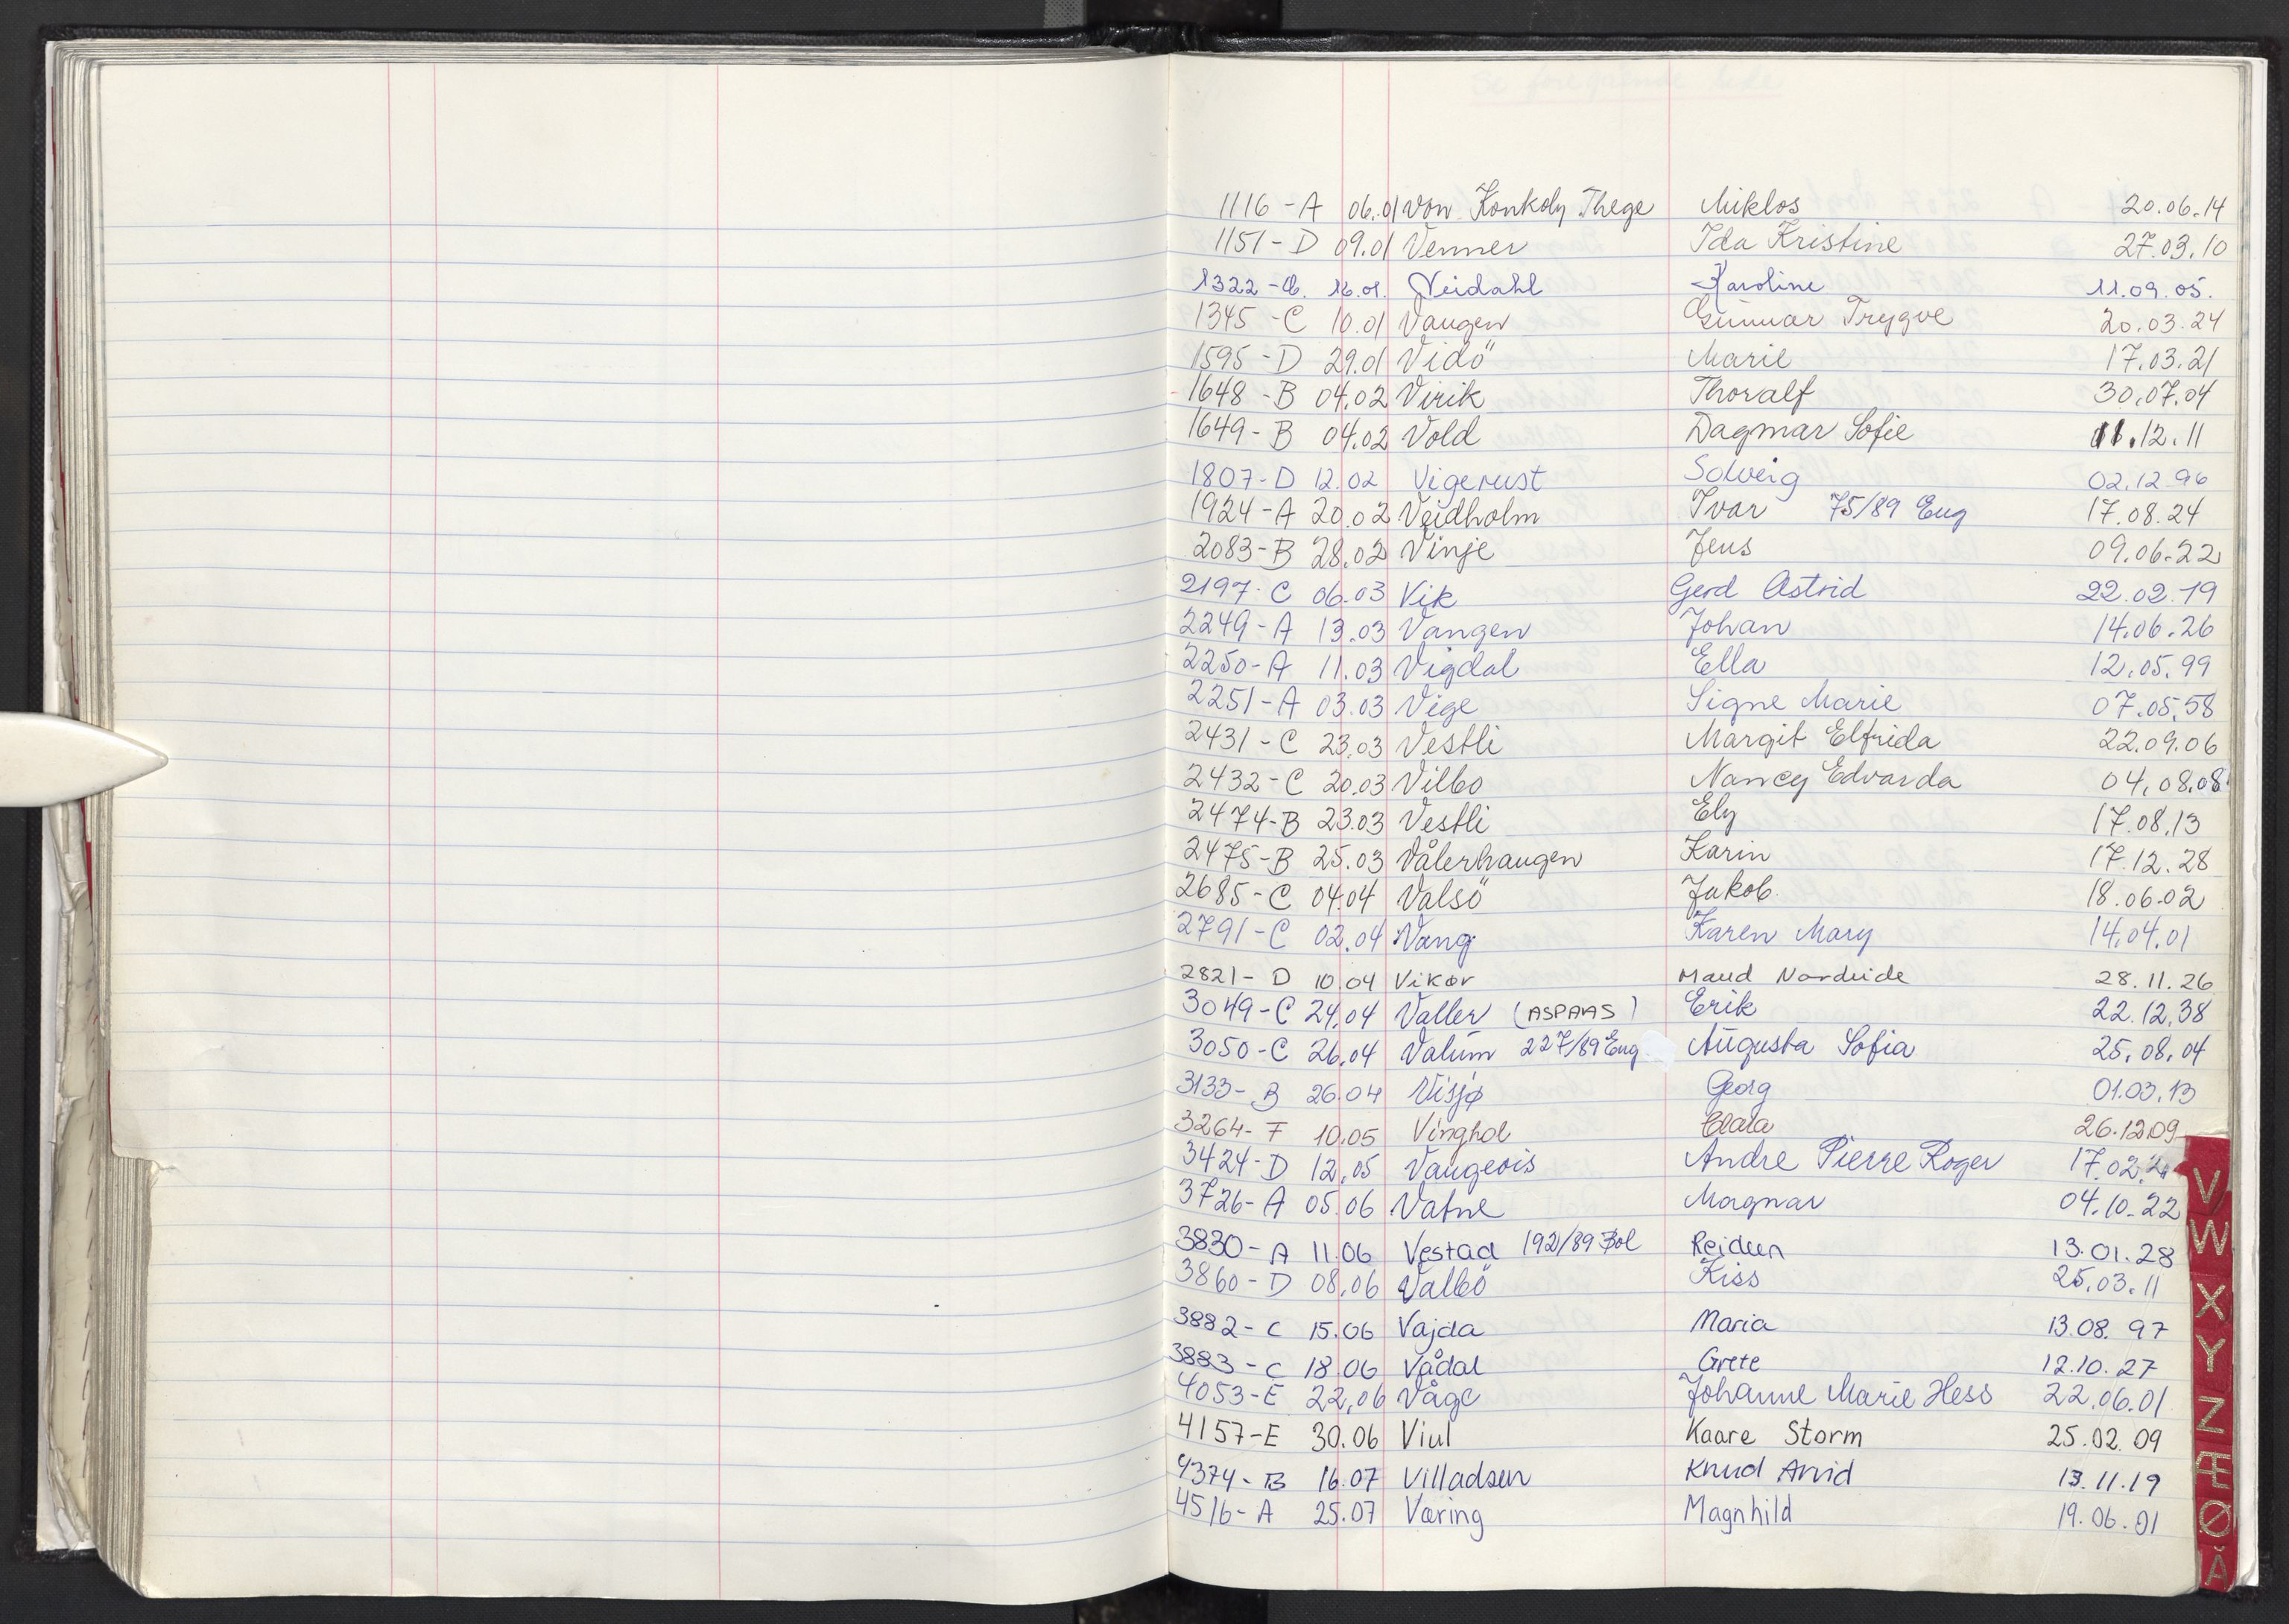 1116 - A 06.01 Von Konkoly Thege Miklos 20.06.14
1151 - D 09.01 Venner Ida Kristine 27.03.10
1322 - 16.01. Veidahl Karoline 11.09.05.
1345 - C 10.01 Vangen Gunnar Trygve 20.03.24
1595 - D 29.01 Vidö Marie 17.03.21
1648 - B 04.02 Virik Thoralf 30.07.04
1649 - B 04.02 Vold Dagmar Sofie 11.12.11
1807 - D 12.02 Vigerust Solveig 02.12.96
1924 - A 20.02 Veidholm Ivar 75/89 Eug 17.08.24
2083 - B 28.02 Vinje Jens 09.06.22
2197 - C 06.03 Vik Gerd Astrid 22.02.19
2249 - A 13.03 Vangen Johan 14.06.26
2250 - A 11.03 Vigdal Ella 12.05.99
2251 - A 03.03 Vige Signe Marie 07.05.58
2431 - C 23.03 Vestli Margit Elfrida 22.09.06
2432 - C 20.03 Vilbo Nancy Edvarda 04.08.08
2474 - B 23.03 Vestli Ely 17.08.13
2475 - B 25.03 Vålerhaugen Karin 17.12.28
2685 - C 04.04 Valsö Jakob 18.06.02
2791 - C 02.04 Vang Karen Mary 14.04.01
2821 - D 10.04 Vikør Maud Nordeide 28.11.26
3049 - C 24.04 Valler (ASPAAS) Erik 22.12.38
3050 - C 26.04 Valum 227/89 Eug Augusta Sofia 25.08.04
3133 - B 26.04 Visjø Georg 01.03.13
3264 - F 10.05 Vinghol Clara 26.12.09
3424 - D 12.05 Vaugeois Andre Pierre Roger 17.02.
3726 - A 05.06 Vatne Magnar 04.10.22
3830 - A 11.06 Vestad 192/89 Bol Reidun 13.01.28
3860 - D 08.06 Valbö Kiss 25.03.11
3882 - C 15.06 Vajda Maria 13.08.97
3883 - C 18.06 Vådal Grete 12.10.27
4053 - E 22.06 Våge Johanne Marie Hess 22.06.01
4157 - E 30.06 Viul Kaare Storm 25.02.09
4374 - B 16.07 Villadsen Knud Arvid 13.11.19
4516 - A 25.07 Væring Magnhild 19.06.01
V
W
X
Y
Z
Æ
Ø
Å